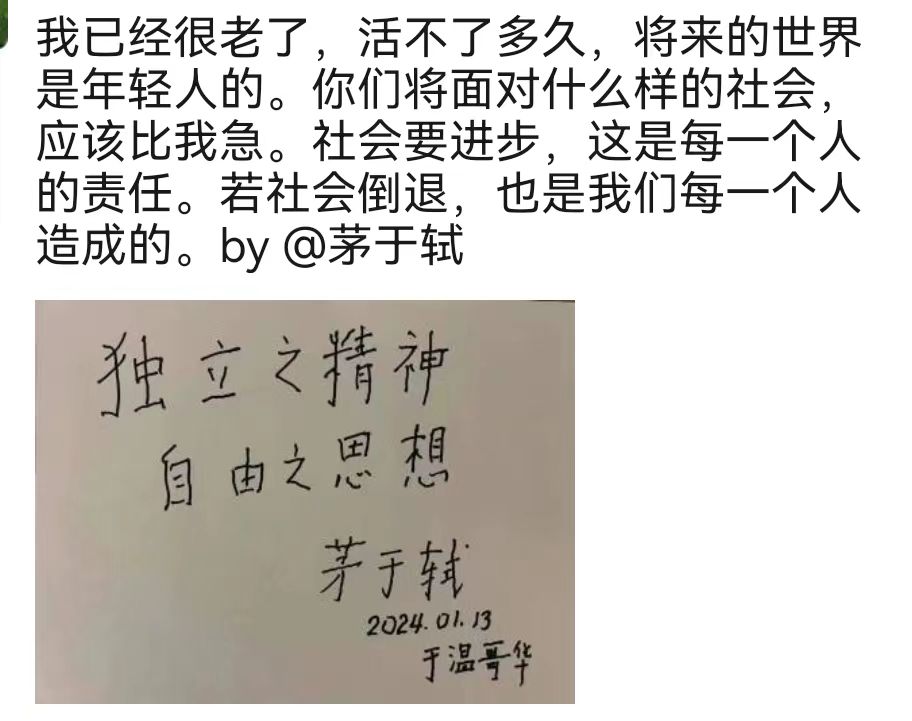 我已经很老了，活不了多久，将来的世界
是年轻人的。你们将面对什么样的社会，
应该比我急。社会要进步，这是每一个人
的责任。若社会倒退，也是我们每一个人
造成的。by @茅于轼
独立之精神
自由之思想
茅于轼
2024.01.13
于温哥华